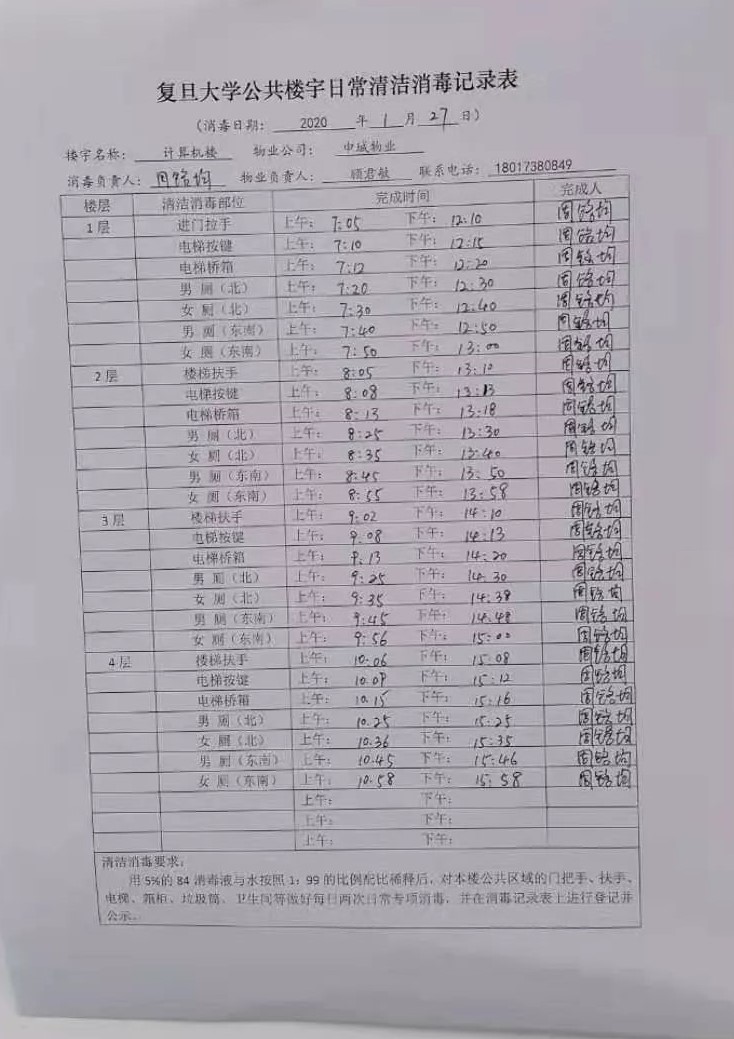 复旦大学公共楼宇日常清洁消毒记录表
(消毒日期: 2020 年 1 月 27 日)
楼宇名称: 计算机楼 物业公司: 中域物业
消毒负责人: 物业负责人: 顾君敏 联系电话: 18017380849
楼层 清洁消毒部位 完成时间 完成人
1层 进门拉手 上午: 7:05 下午: 12:10
电梯按键 上午: 7:10 下午: 12:15
电梯桥箱 上午: 7:12 下午: 12:20
男 厕(北) 上午: 7:20 下午: 12:30
女 厕(北) 上午: 7:30 下午: 12:40
男 厕(东南) 上午: 7:40 下午: 12:50
女 厕(东南) 上午: 7:50 下午: 13:00
2层 楼梯扶手 上午: 8:05 下午: 13:10
电梯按键 上午: 8:08 下午: 13:13
电梯桥箱 上午: 8:13 下午: 13:18
男 厕(北) 上午: 8:25 下午: 13:30
女 厕(北) 上午: 8:35 下午: 13:40
男 厕(东南) 上午: 8:45 下午: 13:50
女 厕(东南) 上午: 8:55 下午: 13:58
3层 楼梯扶手 上午: 9:02 下午: 14:10
电梯按键 上午: 9:08 下午: 14:13
电梯桥箱 上午: 9:13 下午: 14:20
男 厕(北) 上午: 9:25 下午: 14:30
女 厕(北) 上午: 9:35 下午: 14:38
男 厕(东南) 上午: 9:45 下午: 14:48
女 厕(东南) 上午: 9:56 下午: 15:00
4层 楼梯扶手 上午: 10:06 下午: 15:08
电梯按键 上午: 10:09 下午: 15:12
电梯桥箱 上午: 10:15 下午: 15:16
男 厕(北) 上午: 10.25 下午: 15:25
女 厕(北) 上午: 10.36 下午: 15:35
男 厕(东南) 上午: 10.45 下午: 15:46
女 厕(东南) 上午: 10.58 下午: 15:58
上午: 下午:
上午: 下午:
上午: 下午:
清洁消毒要求:
用5%的84消毒液与水按照1:99的比例配比稀释后,对本楼公共区域的门把手、扶手、
电梯、箱柜、垃圾筒、卫生间等做好每日两次日常专项消毒,并在消毒记录表上进行登记并
公示。